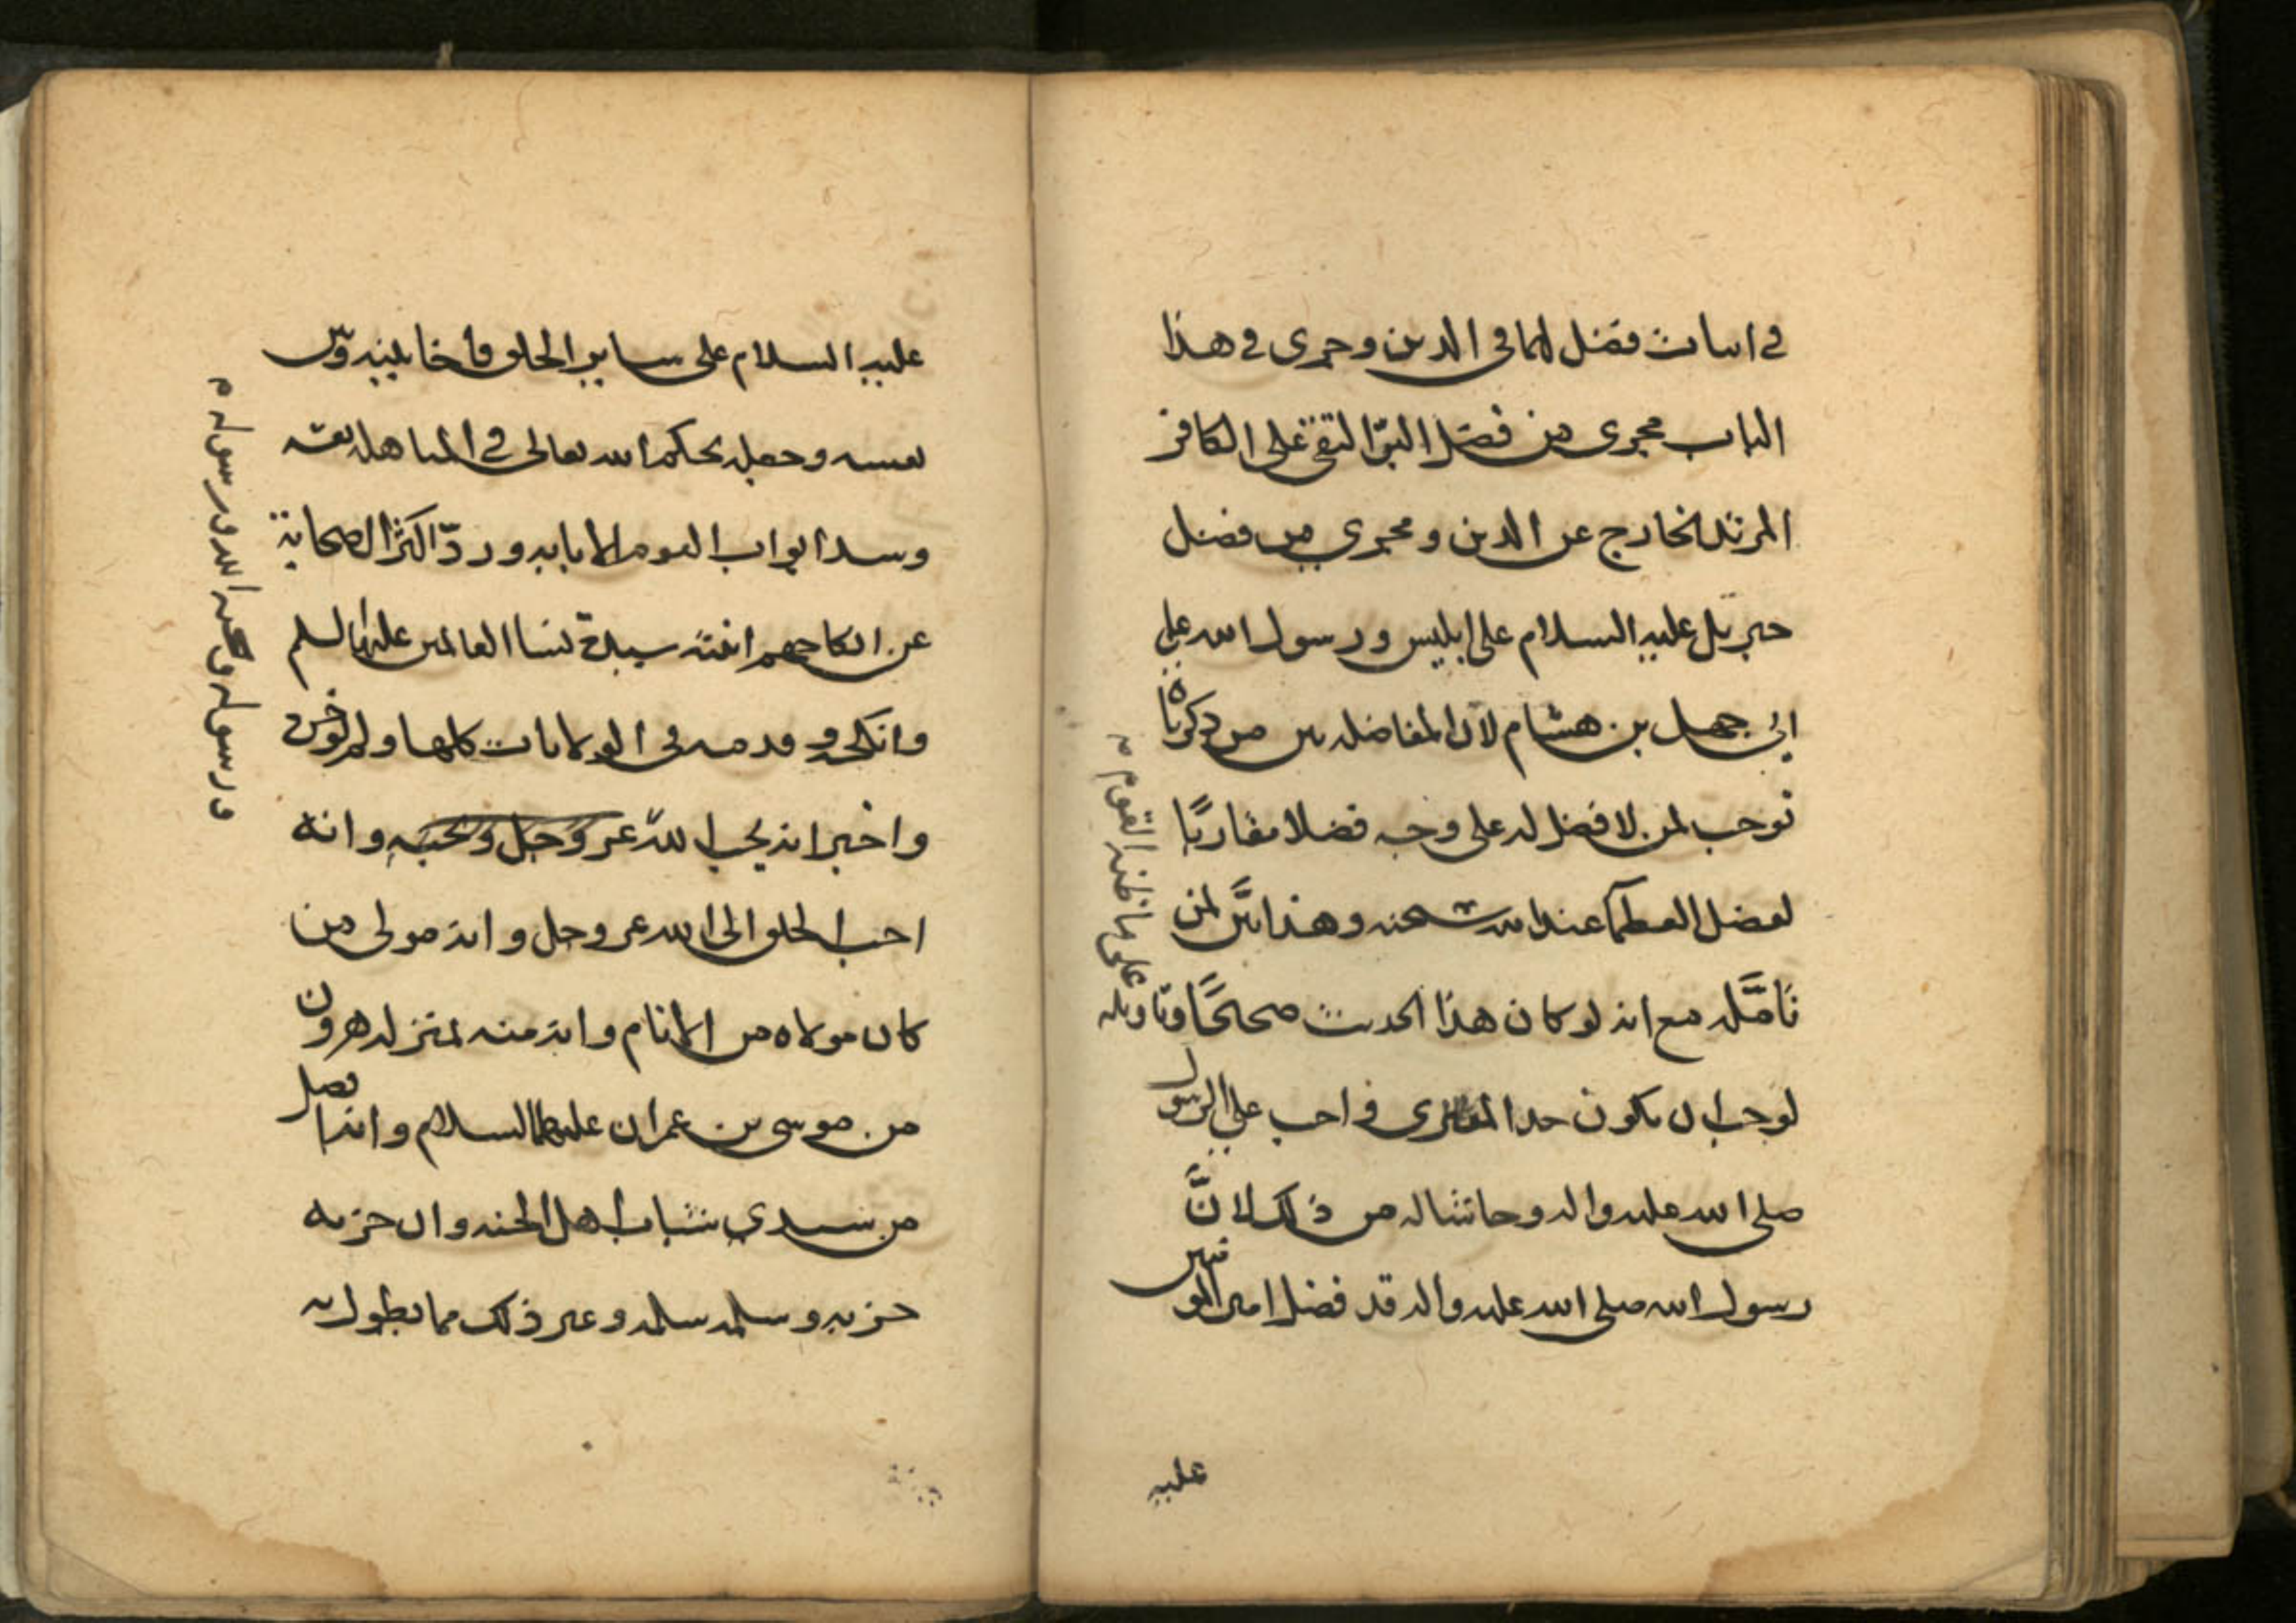 في اثبات فضل لهما في الدين وجرى في هذا
الباب مجرى من فضل البر التقي على الكافر
المرتد الخارج عن الدين ومجرى من فضل
جبرئيل عليه السلام على ابليس ورسول الله على
ابي جهل بن هشام لان المفاضلة بين من ذكرناه
توجب لمن لا فضل له على وجه فضلا مقاربًا
لفضل العظما عند الله سبحنه وهذا بيّن لمن
تامّله مع انه لو كان هذا الحديث صحيحًا وتاويله
على ما ظنه القوم
لوجب ان يكون حد المفترى واجب على الرسول
صلى الله عليه واله وحاشا له من ذلك لانّ
رسول الله صلى الله عليه واله قد فضل امير المومنين
عليه
عليه السلام على ساير الخلق فاخا بينه وبين
نفسه وجعله بحكم الله تعالى في المباهلة نفسه
وسد ابواب القوم الا بابه وردّ اكثر الصحابة
عن انكاحهم ابنته سيدة نسا العالمين عليها السلم
وانكحه وقدمه في الولايات كلها ولم يوخره
واخبر انه يحب الله عز وجل ويحبه وانه
ورسوله ويحبه الله ورسوله
احب الخلق الى الله عز وجل وانه مولى من
كان مولاه من الانام وانه منه بمنزلة هرون
من موسى بن عمران عليهما السلام وانه افضل
من سيدي شباب اهل الجنه وان حزبه
حزبه وسلمه سلمه وغير ذلك مما يطول به